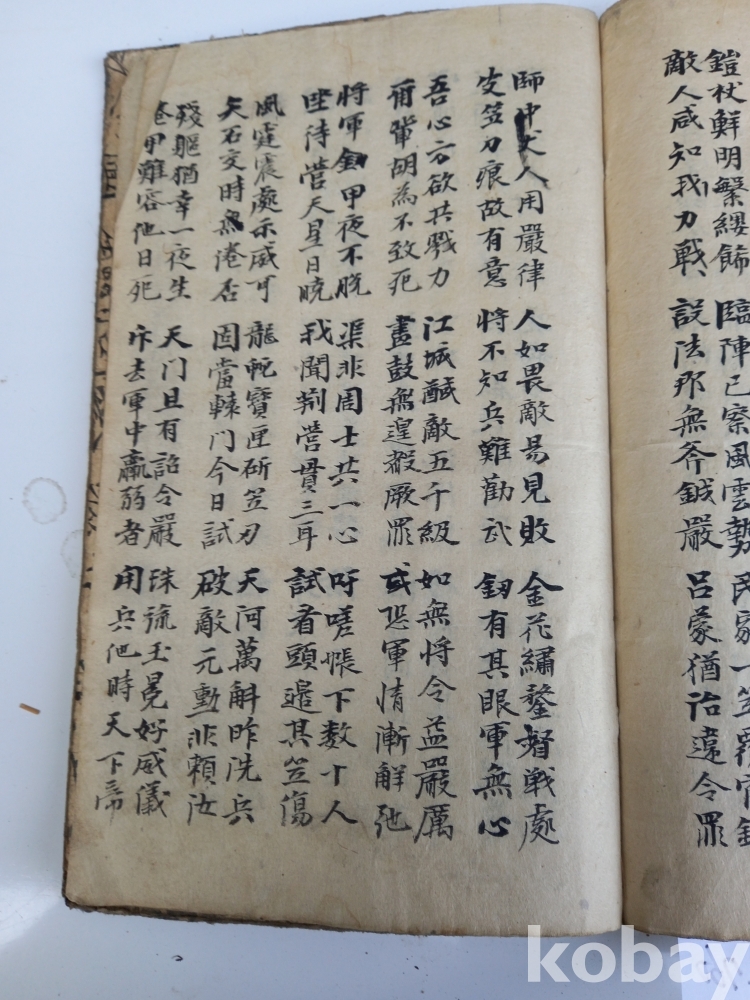 鎧杖鮮明繫纓飾
敵人咸知我力戰
臨陣已察風雲勢
設法那無斧鉞嚴
民家一笠覆官鎧
呂蒙猶治違令罪
師中丈人用嚴律
皮笠刀痕故有意
人如畏敵易見敗
將不知兵難勸武
金花繡鍪督戦處
釼有其眼軍無心
吾心方欲共戮力
爾輩胡為不致死
江城馘敵五千級
畫鼓無遑赦厥罪
如無將令益嚴厲
或恐軍情漸解弛
將軍釼甲夜不脫
坐待營天星日曉
渠非周士共一心
我聞荊營貫三耳
吁嗟帳下數十人
試看頭邊其笠傷
風霆震處示威可
矢石交時無港否
龍蛇寶匣斫笠刃
固當轅門今日試
天河萬斛昨洗兵
破敵元勳非賴汝
殘軀猶幸一夜生
卷甲難容他日死
天门且有詔令嚴
汰去軍中羸弱者
珠旒玉冕好威儀
用兵他時天下帝
kobay